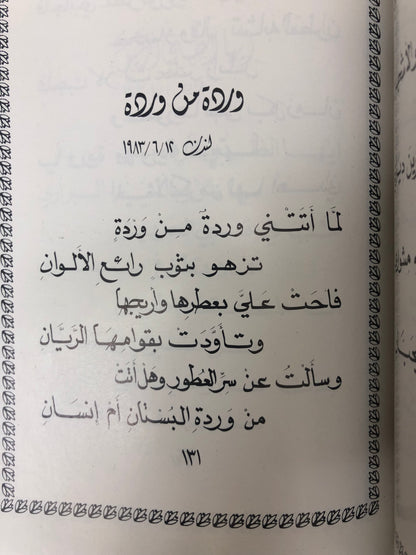 وردة من وردة
لندن ١٩٨٣/٦/١٢
لمَّا أَتَتْني وردةٌ مـنْ وَرْدَةٍ
تـزهـو بثوبِ رائـعِ الأَلـوانِ
فاحَتْ عـليَّ بعطرِها وأريجِها
وتـأوَّدَتْ بقوامِـهَـا الرَّيَّـان
وسألتُ عنْ سرِّ العُطورِ وهَل أنتْ
مـن وردةِ البُستـانِ أمْ إنسَـانِ
١٣١